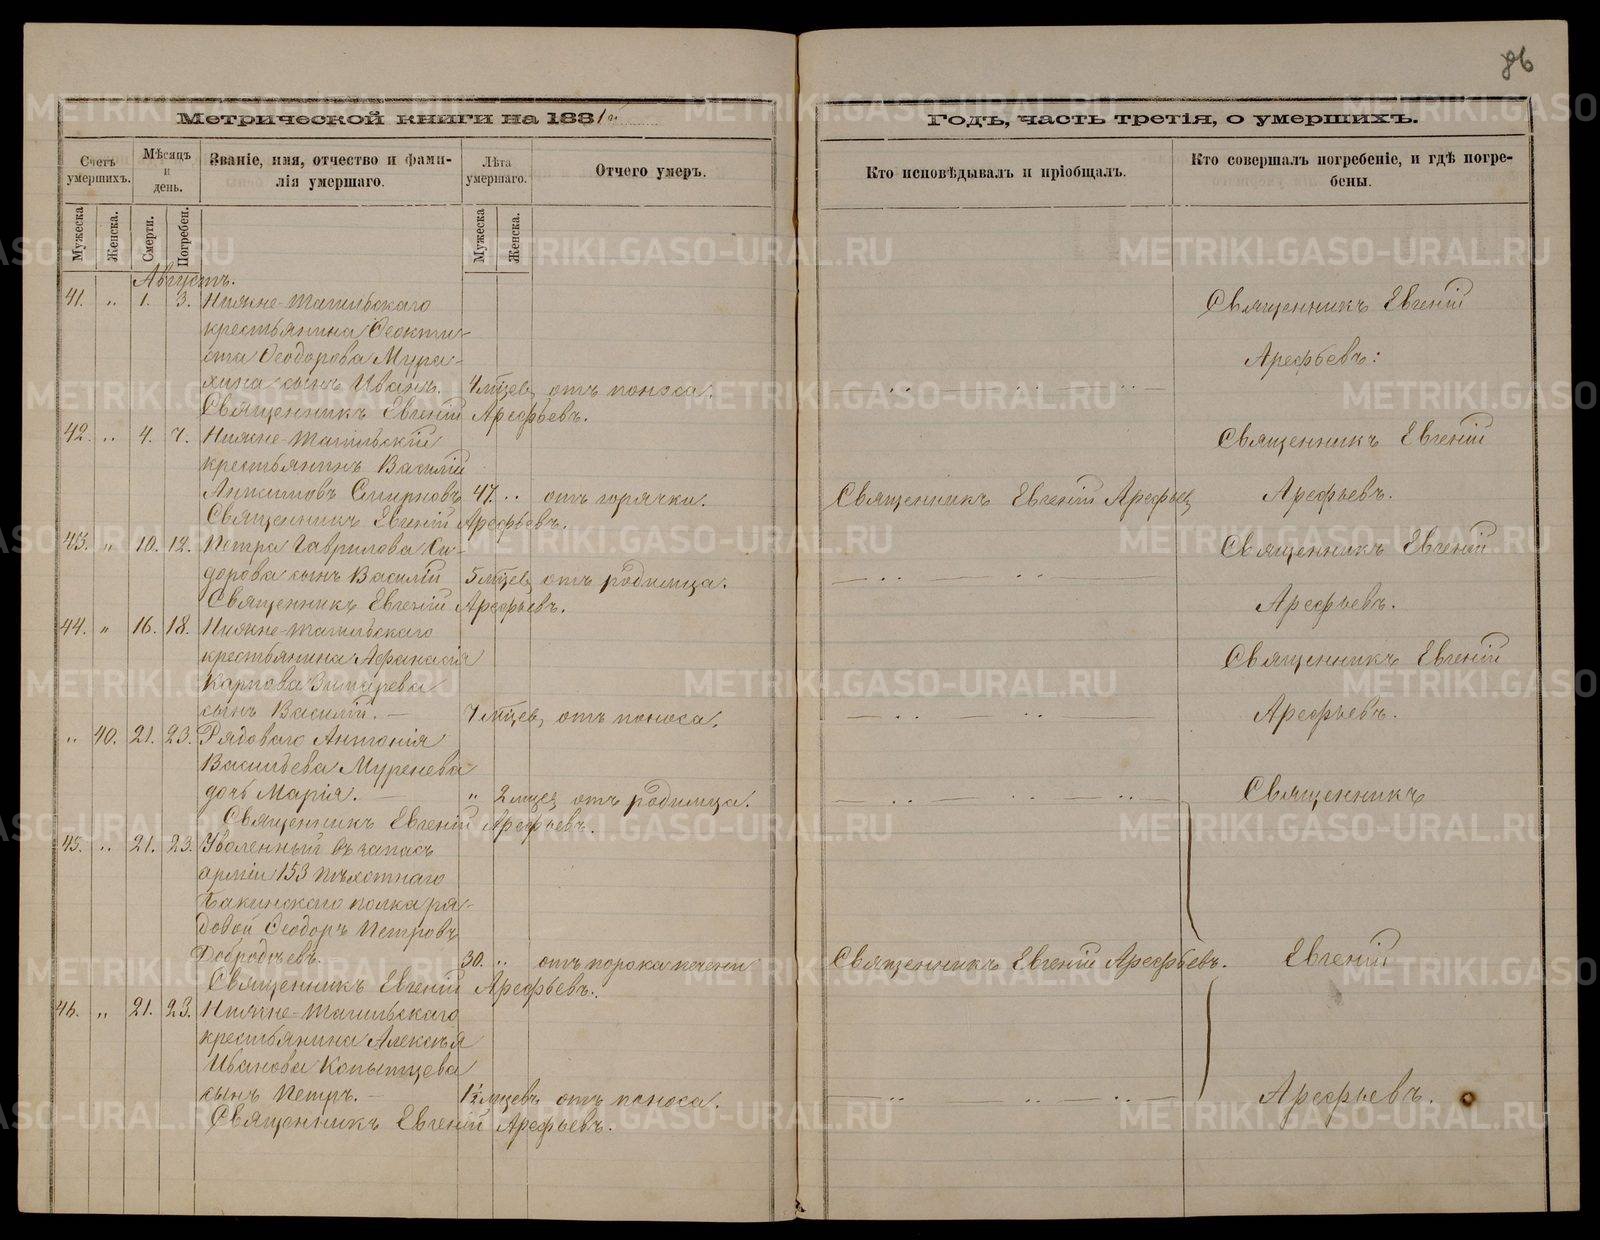 86
Метрической книги на 1881 г.
Годъ, часть третія, о умершихъ.
Счетъ умершихъ.
Мѣсяцъ и день.
Званіе, имя, отчество и фами-
лія умершаго.
Лѣта умершаго.
Отчего умеръ.
Кто исповѣдывалъ и пріобщалъ.
Кто совершалъ погребеніе, и гдѣ погре-
бены.
Мужеска
Женска.
Смерти.
Погребен.
Мужеска
Женска.
Августъ.
41. „ 1. 3. Нижне-Тагильскаго Священникъ Евгеній
крестьянина Ѳеокти-
ста Ѳеодорова Мура- Арефьевъ:
хина сынъ Иванъ. 4 мѣцев. отъ поноса.
Священникъ Евгеній Арефьевъ.
42. „ 4. 7. Нижне-Тагильскій Священникъ Евгеній
крестьянинъ Василій
Смирновъ 47. „ отъ горячки. Священникъ Евгеній Арефьев Арефьевъ.
Священникъ Евгеній Арефьевъ.
43. „ 10. 12. Петра Гаврилова Си- Священникъ Евгеній
дорова сынъ Василій 5 мѣцев. отъ родимца.
Священникъ Евгеній Арефьевъ. Арефьевъ.
44. „ 16. 18. Нижне-Тагильскаго
крестьянина Афанасія Священникъ Евгеній
Карпова
сынъ Василій. мѣцев. отъ поноса. Арефьевъ.
„ 40. 21. 23. Рядоваго Антонія
Васильева Муренева
дочь Марія. „ 2 мцев. отъ родимца. Священникъ
Священникъ Евгеній Арефьевъ.
45. „ 21. 23. Уволенный въ запасъ
арміи 153 Пѣхотнаго
Бакинскаго полка ря-
довой Ѳеодоръ Петровъ
Добродѣевъ. 30. „ отъ порока печени Священникъ Евгеній Арефьевъ. Евгеній
Священникъ Евгеній Арефьевъ.
46. „ 21. 23. Нижне-Тагильскаго
крестьянина Алексѣя
Иванова Копытцева
сынъ Петръ. 1½ мцевъ отъ поноса. Арефьевъ.
Священникъ Евгеній Арефьевъ.
METRIKI.GASO-URAL.RU